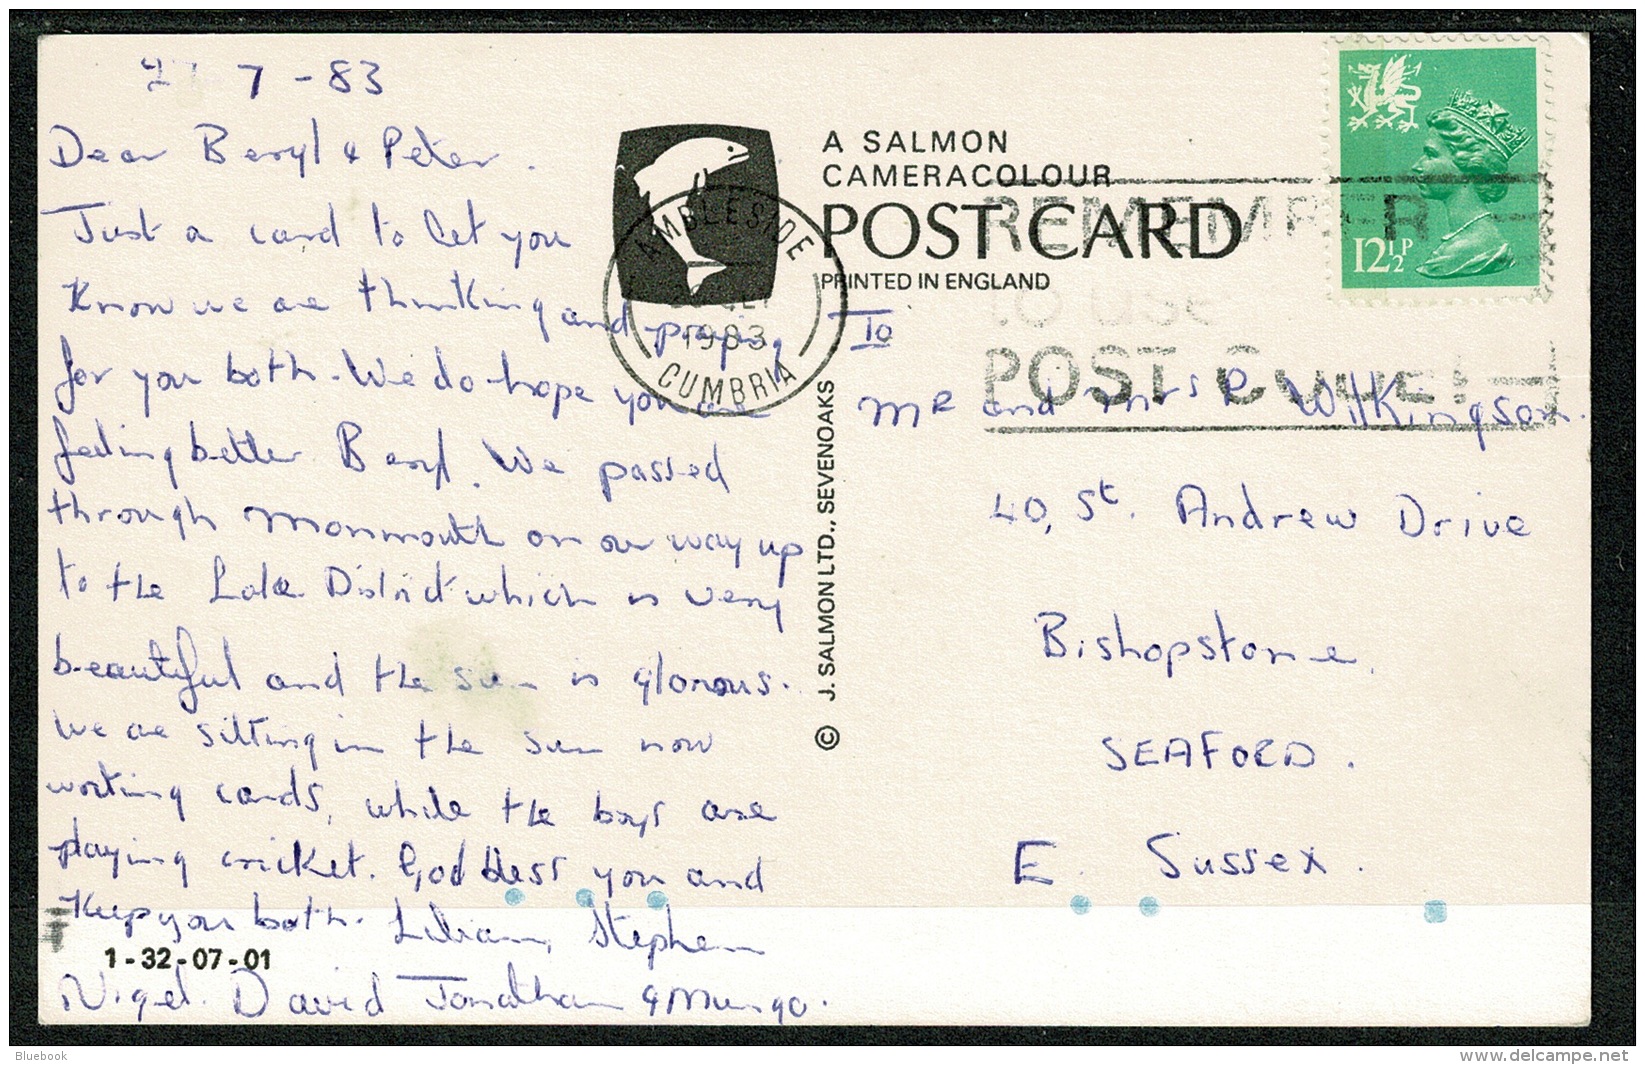 7 - 83
Dear Beryl & Peter.
Just a card to let you
Know we are thinking and praying
for you both. We do hope you are
feeling better Beryl. We passed
through Monmouth on our way up
to the Lake District which is very
beautiful and the sun is glorious.
We are sitting in the sun now
writing cards, while the boys are
playing cricket. God bless you and
Keep you both. Lilian, Stephen
Nigel. David Jonathan & Mungo.
1-32-07-01
A SALMON
CAMERACOLOUR
POST CARD
PRINTED IN ENGLAND
© J. SALMON LTD., SEVENOAKS
AMBLESIDE
1983
CUMBRIA
REMEMBER
to use
POST CODE!
12½P
To
Mr and Mrs P Wilkingson.
40, St. Andrew Drive
Bishopstone.
SEAFORD.
E. Sussex.
Bluebook
www.delcampe.net